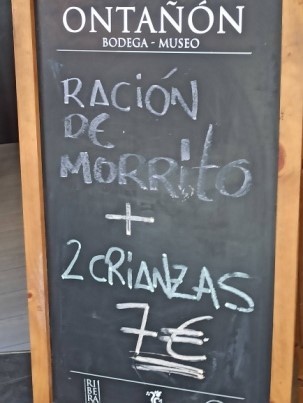 ONTAÑÓN
BODEGA - MUSEO
RACIÓN
DE
MORRITO
+
2 CRIANZAS
7€
RIBERA